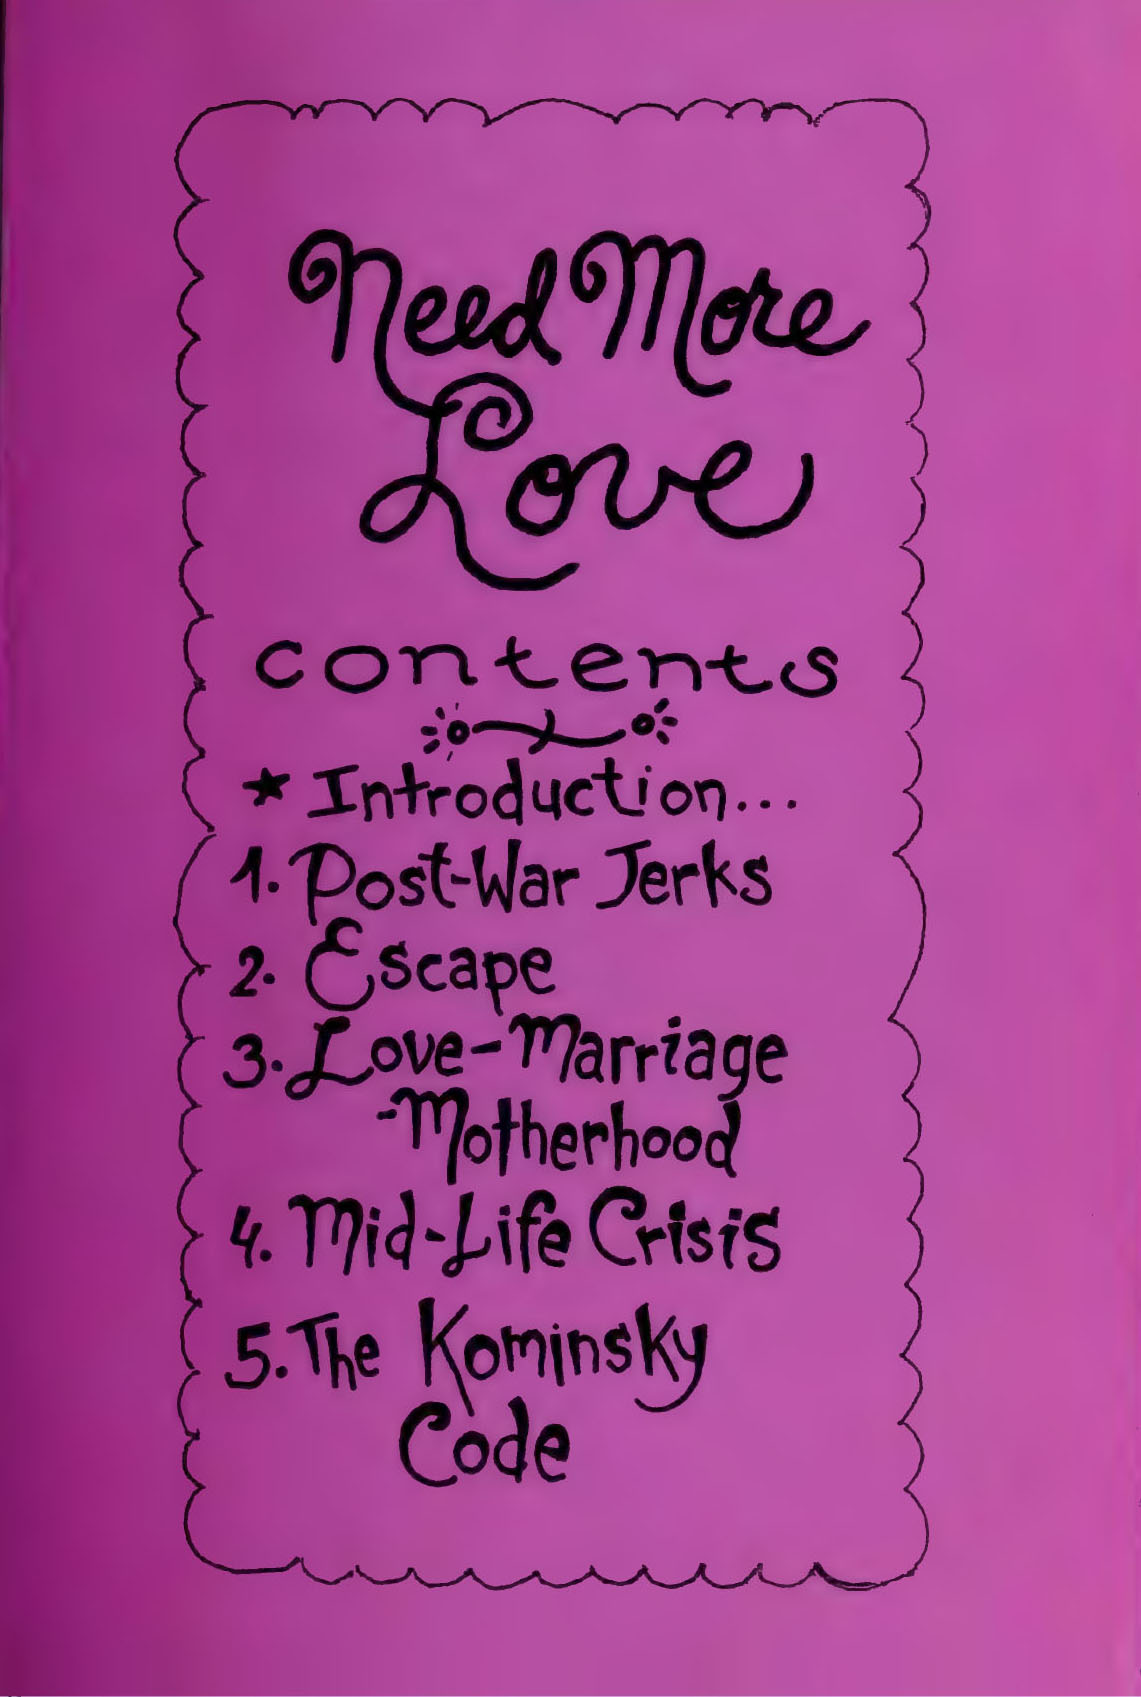 Need More
Love
contents
★ Introduction...
1. Post-War Jerks
2. Escape
3. Love-Marriage
-Motherhood
4. Mid-Life Crisis
5. The Kominsky
Code